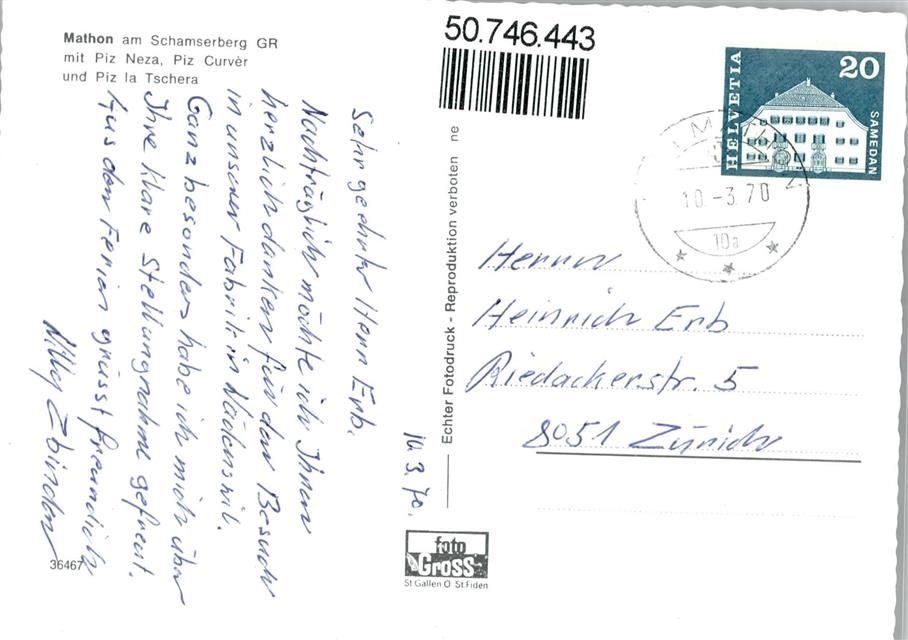 Mathon am Schamserberg GR
mit Piz Neza, Piz Curvèr
und Piz la Tschera
10.3.70.
Sehr geehrter Herr Erb.
Nachträglich möchte ich Ihnen
herzlich danken für den Besuch
in unserer Fabrik in Wädenswil.
Ganz besonders habe ich mich über
Ihre klare Stellungnahme gefreut.
Aus den Ferien grüsst freundlich
Willy Zbinden
36467
Echter Fotodruck - Reproduktion verboten ne
foto
Gross
St Gallen O St Fiden
50.746.443
HELVETIA
20
SAMEDAN
10.-3.70
10a
Herrn
Heinrich Erb
Riedackerstr. 5
8051 Zürich